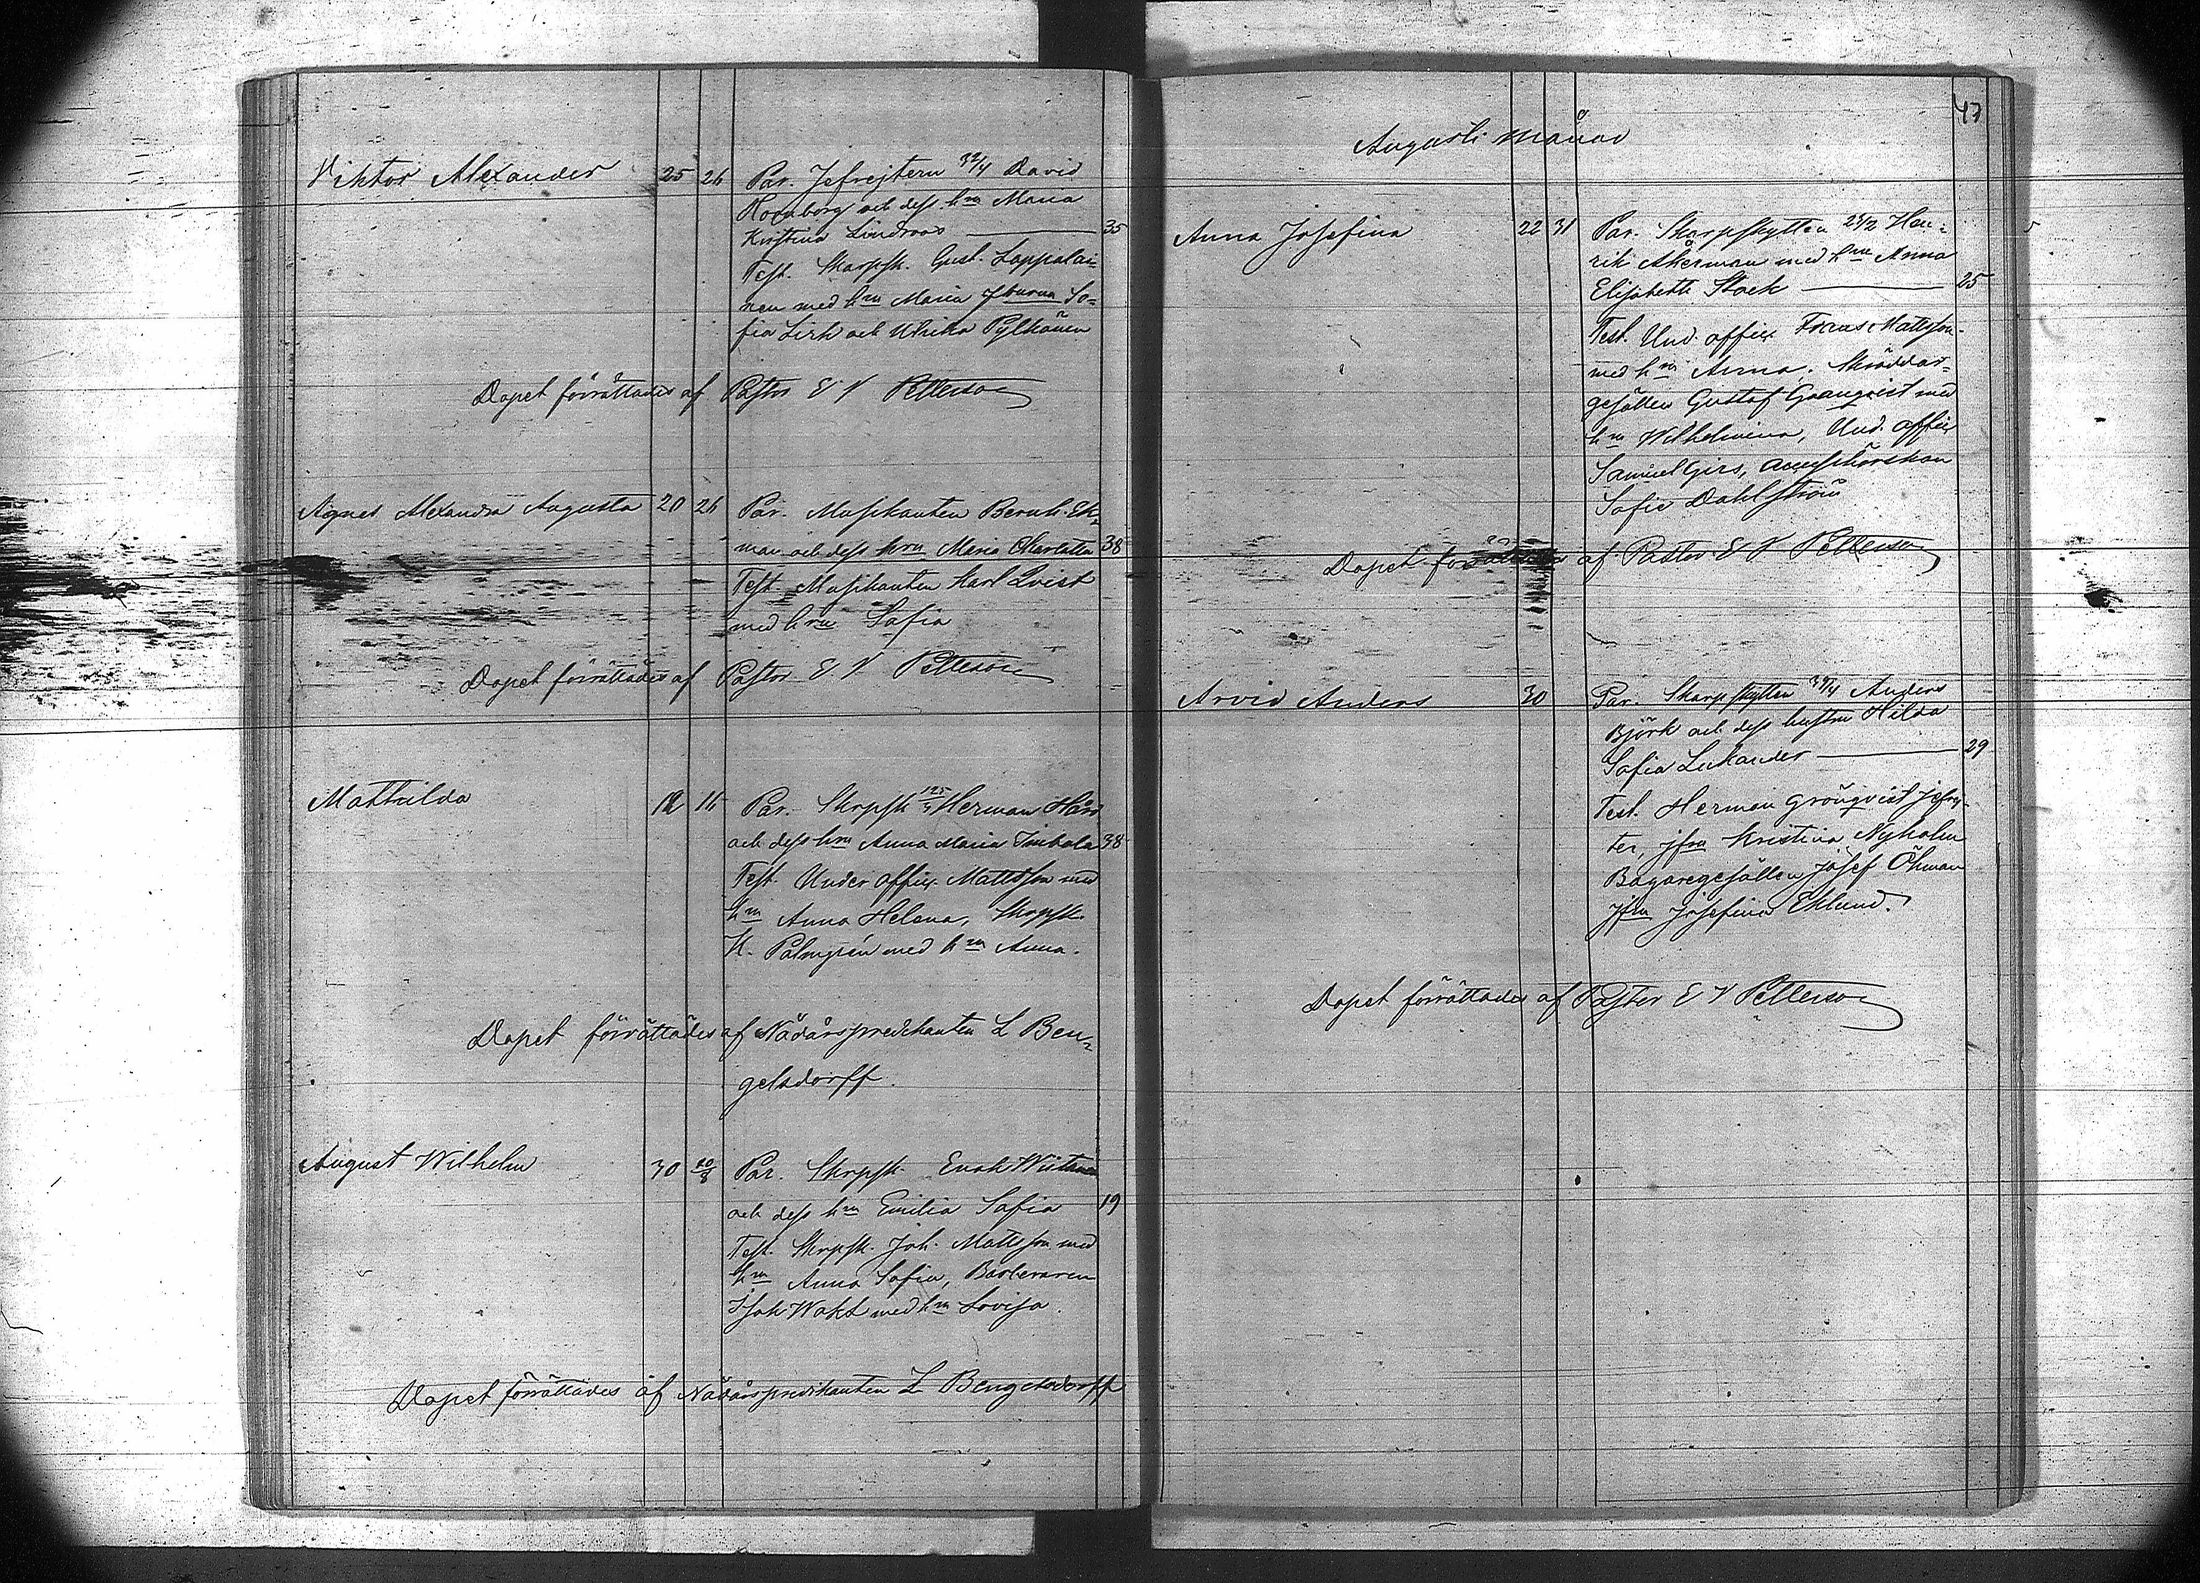 Viktor Alexander 25 26 Par. Jefrejtern 32/4 David
Hornborg och dess hru Maria
Kristina Lindroos — 35
Test. Skarpsk. Gust. Lappalai=
nen med hru Maria Jfrurna So=
fia Lirk och Ulrika Pylkänen
Dopet förrättades af Pastor E V Petterson
Agnes Alexandra Augusta 20 26 Par. Musikanten Bernh. Ek=
man och dess hru Maria Charlotta 38
Test. Musikanten Karl Qvist
med hru Sofia
Dopet förrättades af Pastor E. V Petterson
Mathilda 12 16 Par. Skrpsk 125/4 Herman Hård
och dess hru Anna Maria 38
Test. Under offic. Mattsson med
hru Anna Helena, Skrpsk.
K. Palmgrén med hru Anna.
Dopet förrättades af Nådårspredikanten L Ben=
gelsdorff.
August Wilhelm 30 20/8 Par. Skrpsk Enok
och dess hru Emilia Sofia 19
Test. Skrpsk. Joh. Mattsson med
hru Anna Sofia, Barberaren
Isak Wakt med hru Lovisa.
Dopet förrättades af Nådårspredikanten L Bengelsdorff
47
Augusti månad
Anna Josefina 22 31 Par. Skarpskytten 23/2 Hen=
rik Åkerman med hru Anna
Elisabeth Stock — 25
Test. Und. offic. Frans Mattsson
med hru Anna. Skräddar=
gesällen Gustaf Granqvist med
hru Wilhelmina, Und. offic
Samuel Girs,
Sofie Dahlström
Dopet förrättades af Pastor E V Petterson
Arvid Anders 30 Par. Skarpskytten 39/4 Anders
Björk och dess hustru Hilda
Sofia Lukander — 29
Test. Herman Grönqvist Jefrej-
ter, jfru Kristina Nyholm
Bagaregesällen Josef Öhman
jfru Josefina Eklund.
Dopet förrättades af Pastor E V Petterson